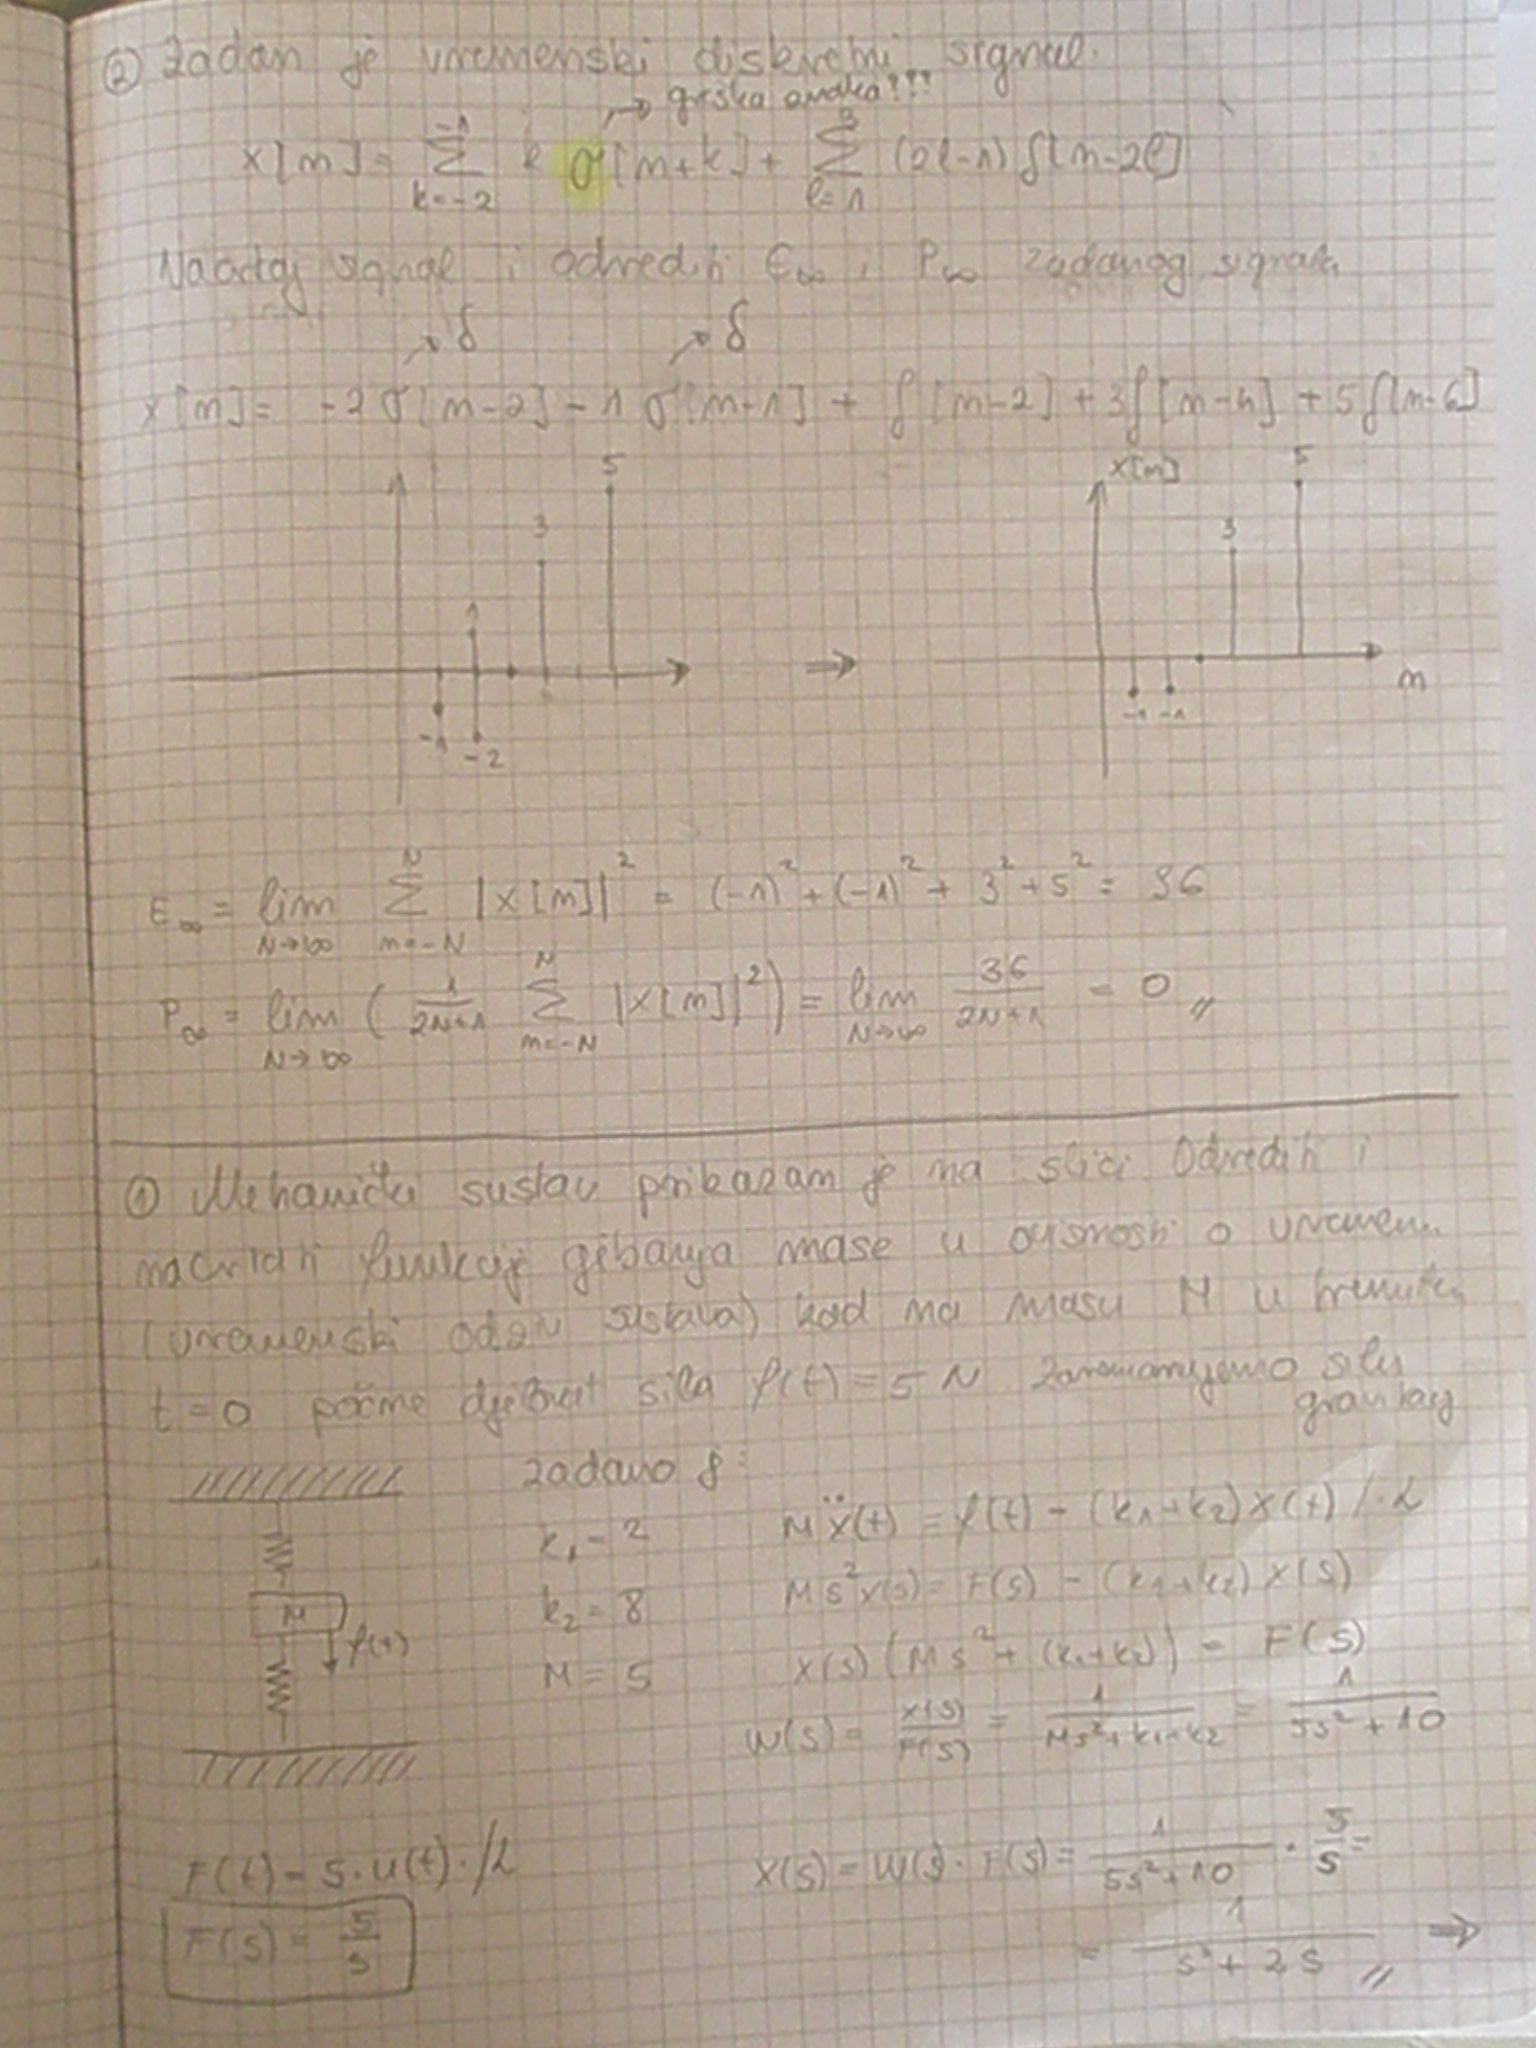 ② Zadan je vremenski diskretni signal.
→ grška oznaka!!!
x[n] = Σ_{k=-2}^{-1} k σ[n+k] + Σ_{l=1}^{3} (2l-1) δ[n-2l]
Nacrtaj signal i odrediti E∞ i P∞ zadanog signala
→ δ → δ
x[n] = -2 σ[n-2] - 1 σ[n-1] + δ[n-2] + 3δ[n-4] + 5δ[n-6]
5 x[n] 5
3 3
1
⇒ n
-1 -2 -1 -1
E∞ = lim_{N→∞} Σ_{n=-N}^{N} |x[n]|² = (-1)² + (-1)² + 3² + 5² = 36
P∞ = lim_{N→∞} ( 1/(2N+1) Σ_{n=-N}^{N} |x[n]|² ) = lim_{N→∞} 36/(2N+1) = 0 //
① Mehanički sustav prikazan je na slici Odrediti i
nacrtati funkciju gibanja mase u ovisnosti o vremenu
(vremenski odziv sustava) kad na masu M u trenutku
t = 0 počne djelovat sila f(t) = 5 N Zanemarujemo silu
gravitacij
zadano je:
k₁ = 2
k₂ = 8
M = 5
M
f(t)
Mẍ(t) = f(t) - (k₁+k₂)x(t) /·L
Ms²X(s) = F(s) - (k₁+k₂)X(s)
X(s)(Ms² + (k₁+k₂)) = F(s)
W(s) = X(s)/F(s) = 1/(Ms²+k₁+k₂) = 1/(5s²+10)
F(t) = 5·u(t) ·/L
F(s) = 5/s
X(s) = W(s)·F(s) = 1/(5s²+10) · 5/s =
= 1/(s³+2s) // ⇒